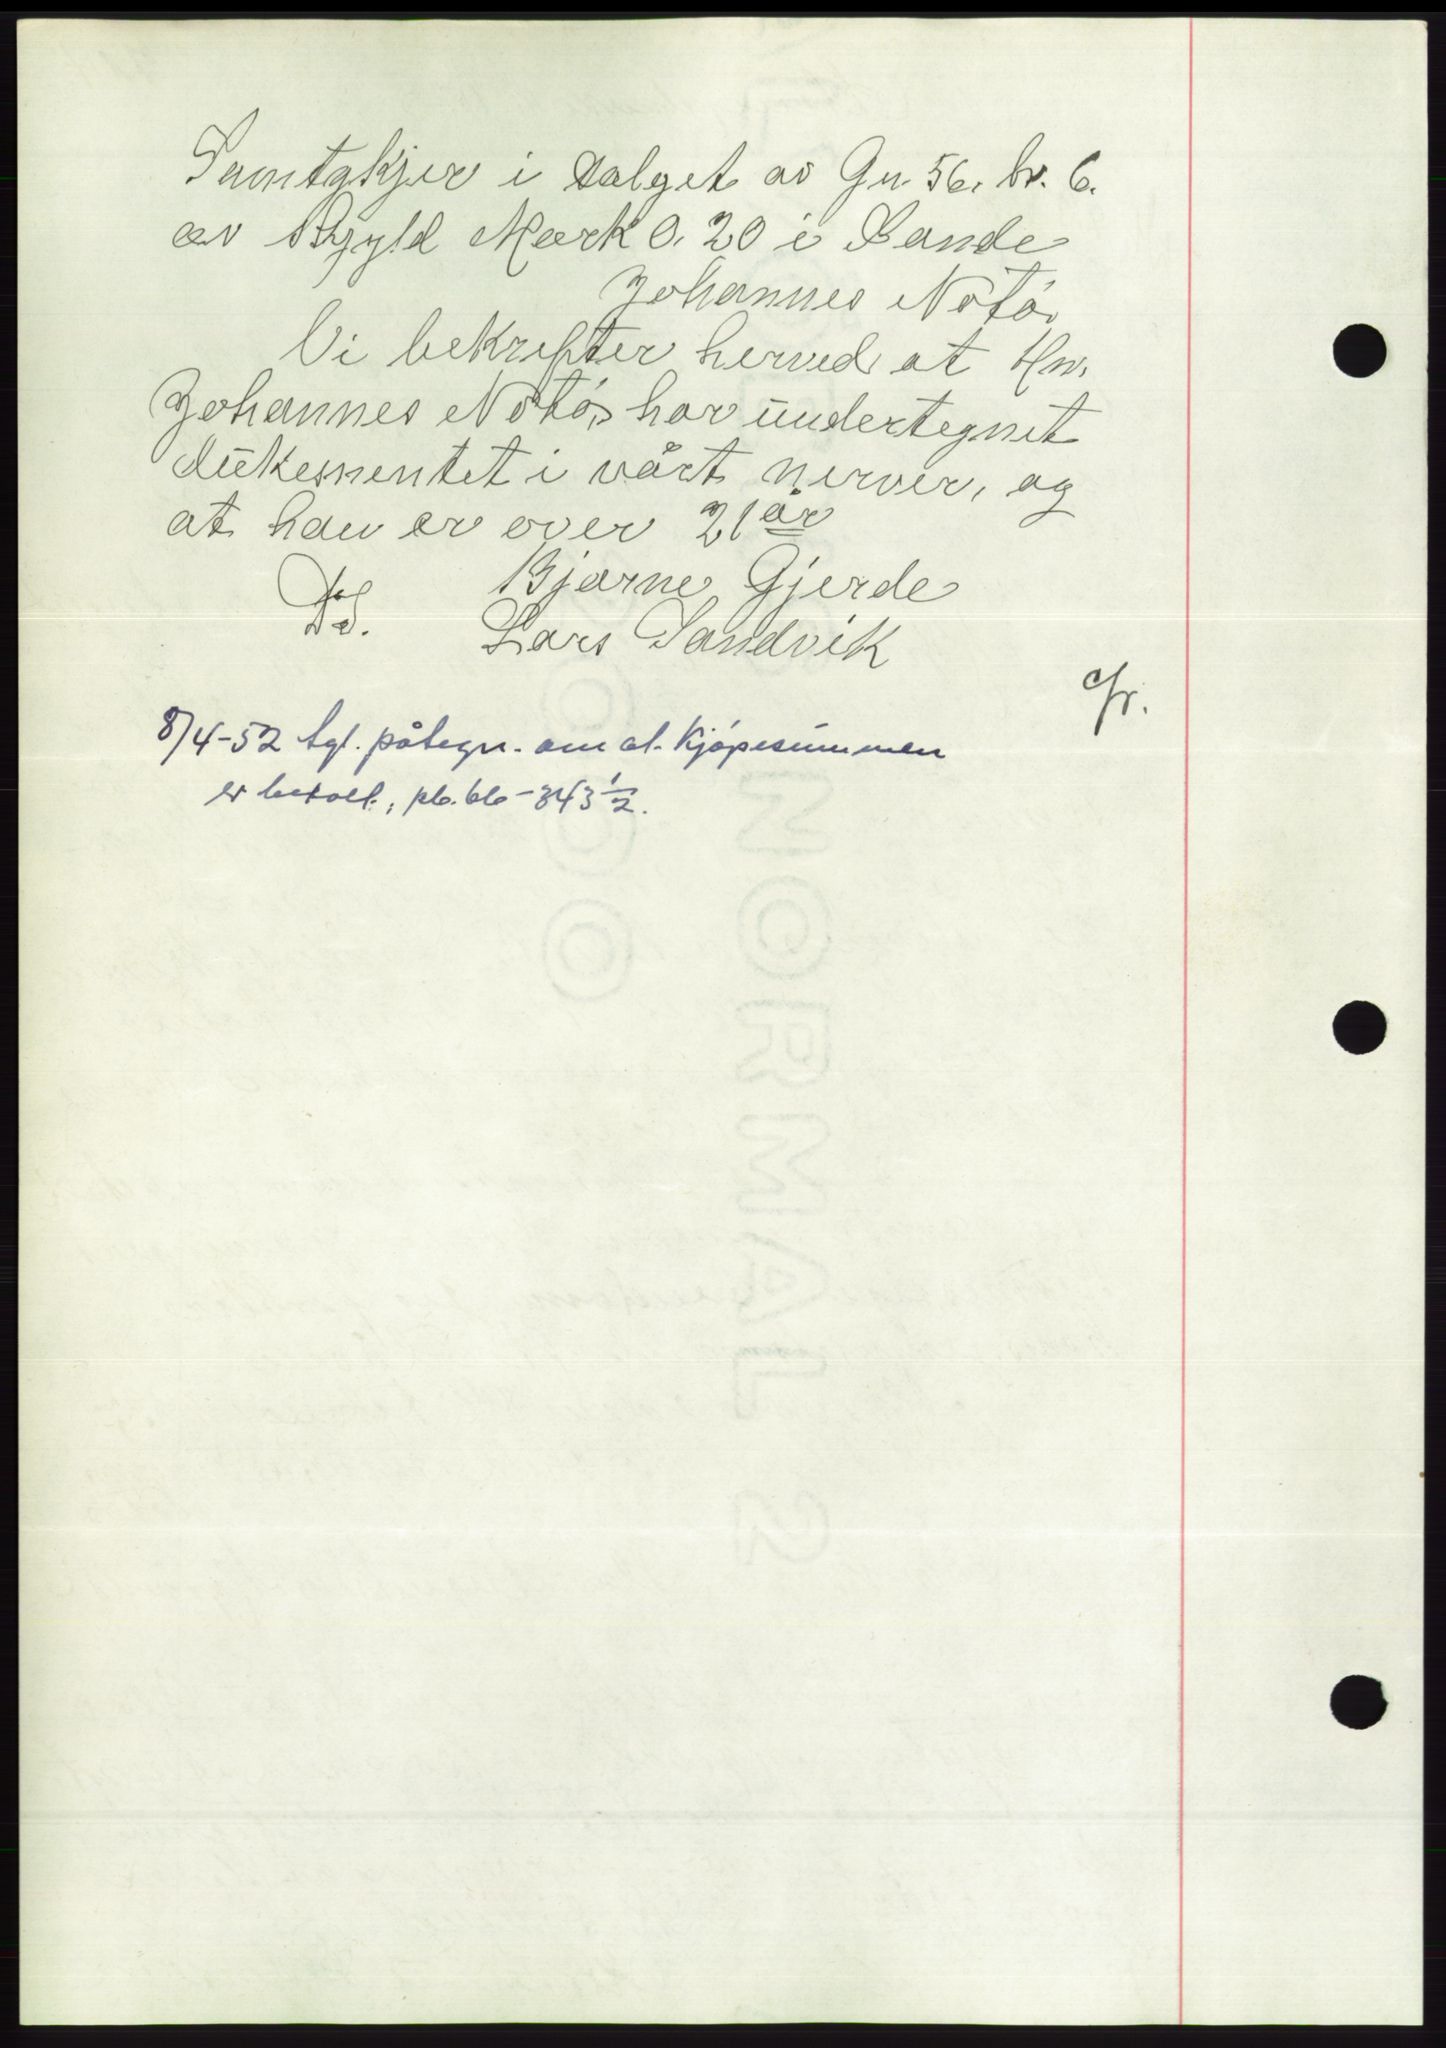 Samtykjer i salget av Gn. 56. br. 6.
av Skyld Mark 0.20 i Sande
Johannes Notø.
Vi bekrefter herved at Hr.
Johannes Notø, har undertegnet
dukementet i vårt nerver, og
at han er over 21 år
Bjarne Gjerde
Lars Sandvik
8/4-52 tgl. påtegn. om at kjøpesummen
er betalt, pb. bb - 343 1/2.
NORMAL 2